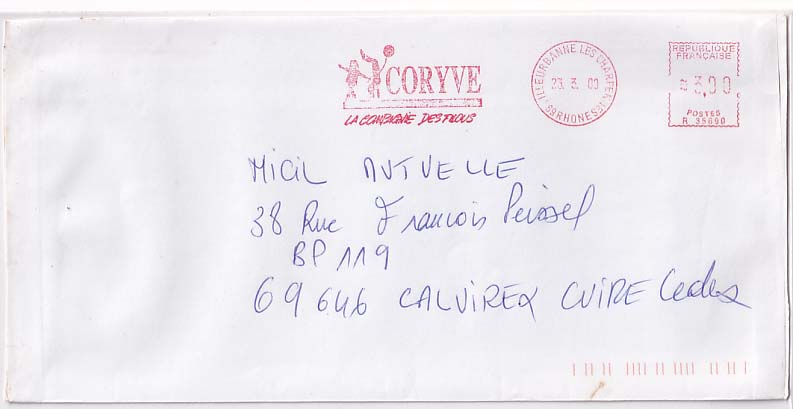 CORYVE
LA COMPAGNIE DES FILOUS
VILLEURBANNE LES CHARPENNES
69 RHONE
23. 3. 00
REPUBLIQUE
FRANÇAISE
3,00
POSTES
R 35690
MICIL MUTUELLE
38 Rue François Peissel
BP 119
69646 CALUIREX CUIRE Cedex